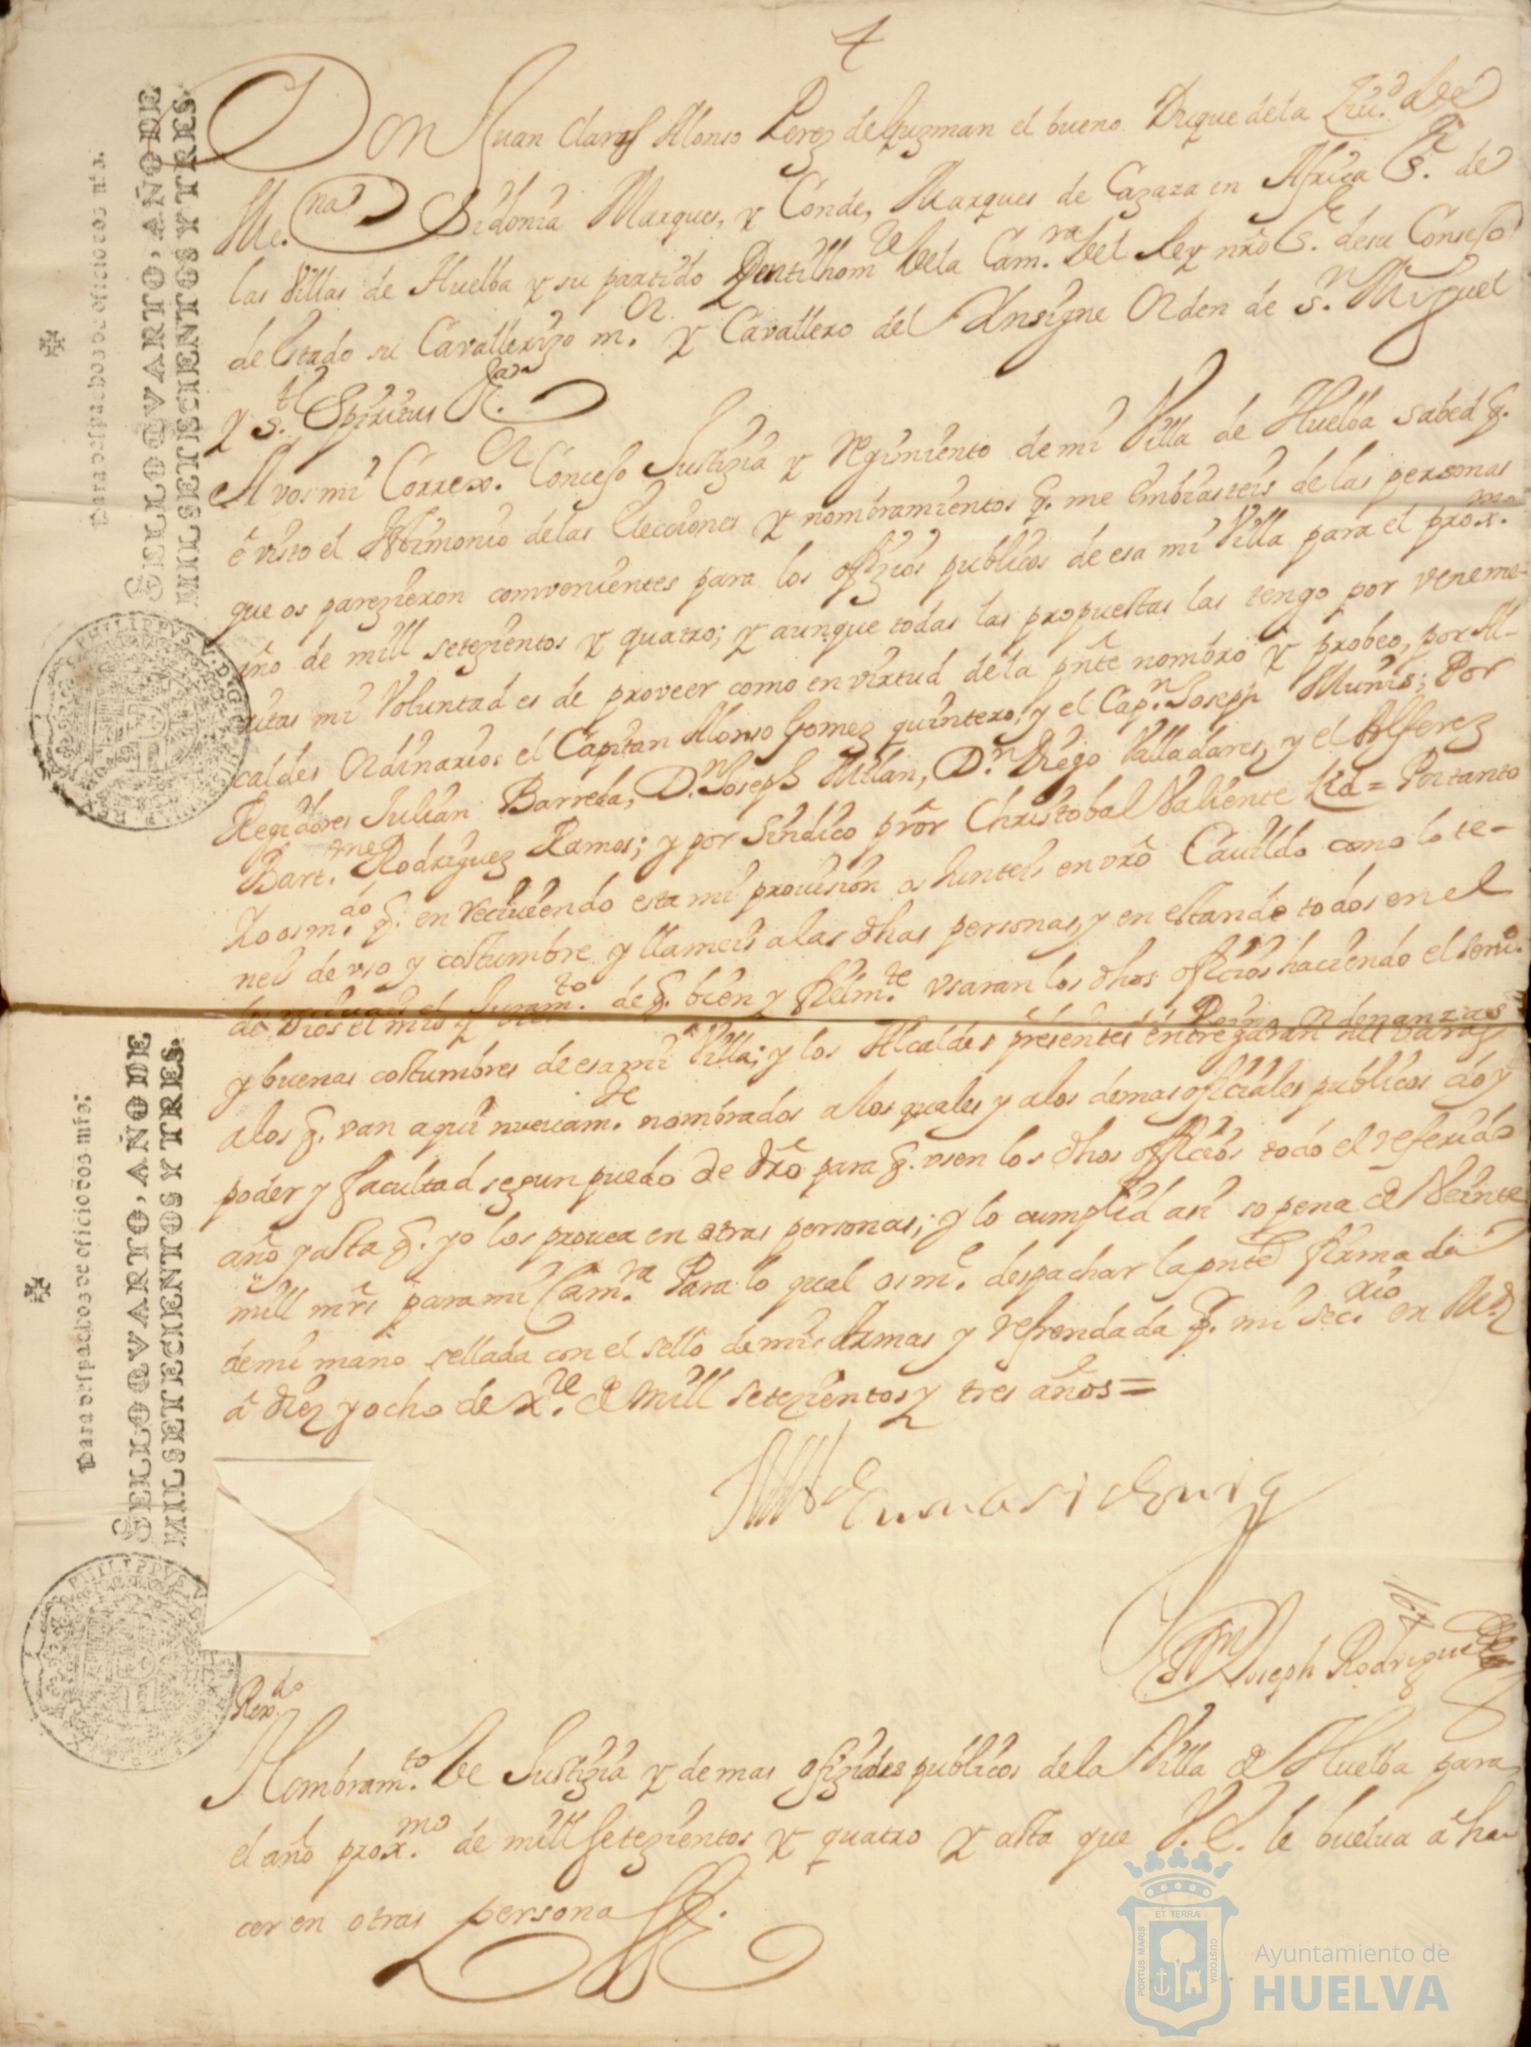 4
Don Juan Claros Alonso Perez de Guzman el bueno Duque de la Ziu.d de
Me.na Sidonia Marques, y Conde, Marques de Cazaza en Africa S.r de
las Villas de Huelba y su partido Gentilhom.e de la Cam.ra del Rey nrõ S.r de su Consejo
de estado su Cavallerizo m.or y Cavallero del Insigne Orden de S.n Miguel
y S.ti Spiritus &.a
A vos mi Correx.or Concejo Justizia y regimiento de mi Villa de Huelba sabed q.
é visto el testimonio de las Elecciones y nombramientos q. me embiasteis de las personas
que os parezieron convenientes para los ofizios publicos de esa mi Villa para el prox.mo
año de mill setezientos y quatro; y aunque todas las propuestas las tengo por veneme-
ritas mi voluntad es de proveer como en virtud de la pñte nombro y probeo, por Al-
caldes Ordinarios el Capitan Alonso Gomez quintero; y el Cap.n Joseph Muñis; Por
Regidores Julian Barreda, D.n Joseph Milan, D.n Diego Valladares, y el Alferez
Bart.me Rodriguez Ramos; y por Sindico prõr Christobal Valiente Lid = Portanto
Yo os m.do q. en reciuiendo esta mi prouision os Junteis en vrõ Cauildo como lo te-
neis de vso y costumbre y llameis a las dhas personas, y en estando todos en el
Juram.to de q. bien y fielm.te vsaran los dhos oficios haciendo el seru.o
de Dios el mio y
y buenas costumbres de esa mi Villa; y los Alcaldes presentes entregaran las baras
a los q. van aqui nueuam.te nombrados a los quales y a los demas oficiales publicos doy
poder y facultad segun puedo de drõ para q. vsen los dhos officios todo el referido
año y asta q. yo los prouea en otras personas; y lo cumplid asi so pena de Veinte
mill mrs para mi Cam.ra Para lo qual os m.e despachar la pnte firmada
de mi mano sellada con el sello de mis Armas y refrendada q. mi sec.rio en M.d
a diez y ocho de X.re de mill setezientos y tres años =
Joseph Rodriguez
Nombram.to de Justizia y demas ofiziales publicos de la Villa de Huelba para
el año prox.mo de mill setezientos y quatro y asta que V.E. le buelua á ha-
cer en otras persona
Para despachos de oficio dos mrs.
SELLO QVARTO, AÑO DE
MIL SETECIENTOS Y TRES.
Para despachos de oficio dos mrs.
SELLO QVARTO, AÑO DE
MIL SETECIENTOS Y TRES.
PORTUS MARIS
ET TERRÆ
CUSTODIA
Ayuntamiento de
HUELVA